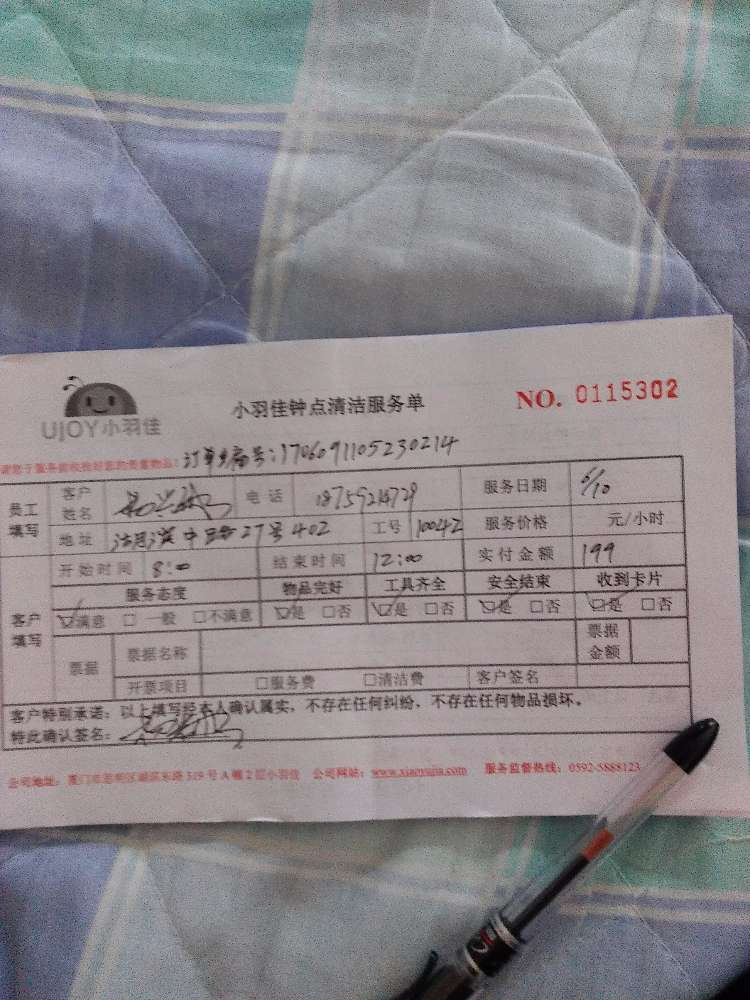 小羽佳钟点清洁服务单 NO. 0115302
UJOY小羽佳
请您于服务前收捡好您的贵重物品! 订单编号:1706091105230214
员工填写 客户姓名 电话 18759214729 服务日期 6/10
地址 27号402 工号 10042 服务价格 元/小时
开始时间 8:00 结束时间 12:00 实付金额 199
客户填写 服务态度 物品完好 工具齐全 安全结束 收到卡片
☑满意 □一般 □不满意 ☑是 □否 ☑是 □否 ☑是 □否 ☑是 □否
票据 票据名称 票据金额
开票项目 □服务费 □清洁费 客户签名
客户特别承诺:以上填写经本人确认属实,不存在任何纠纷,不存在任何物品损坏。
特此确认签名:
公司地址:厦门市思明区湖滨东路319号A幢2层小羽佳 公司网站:www.xiaoyujia.com 服务监督热线:0592-5888123